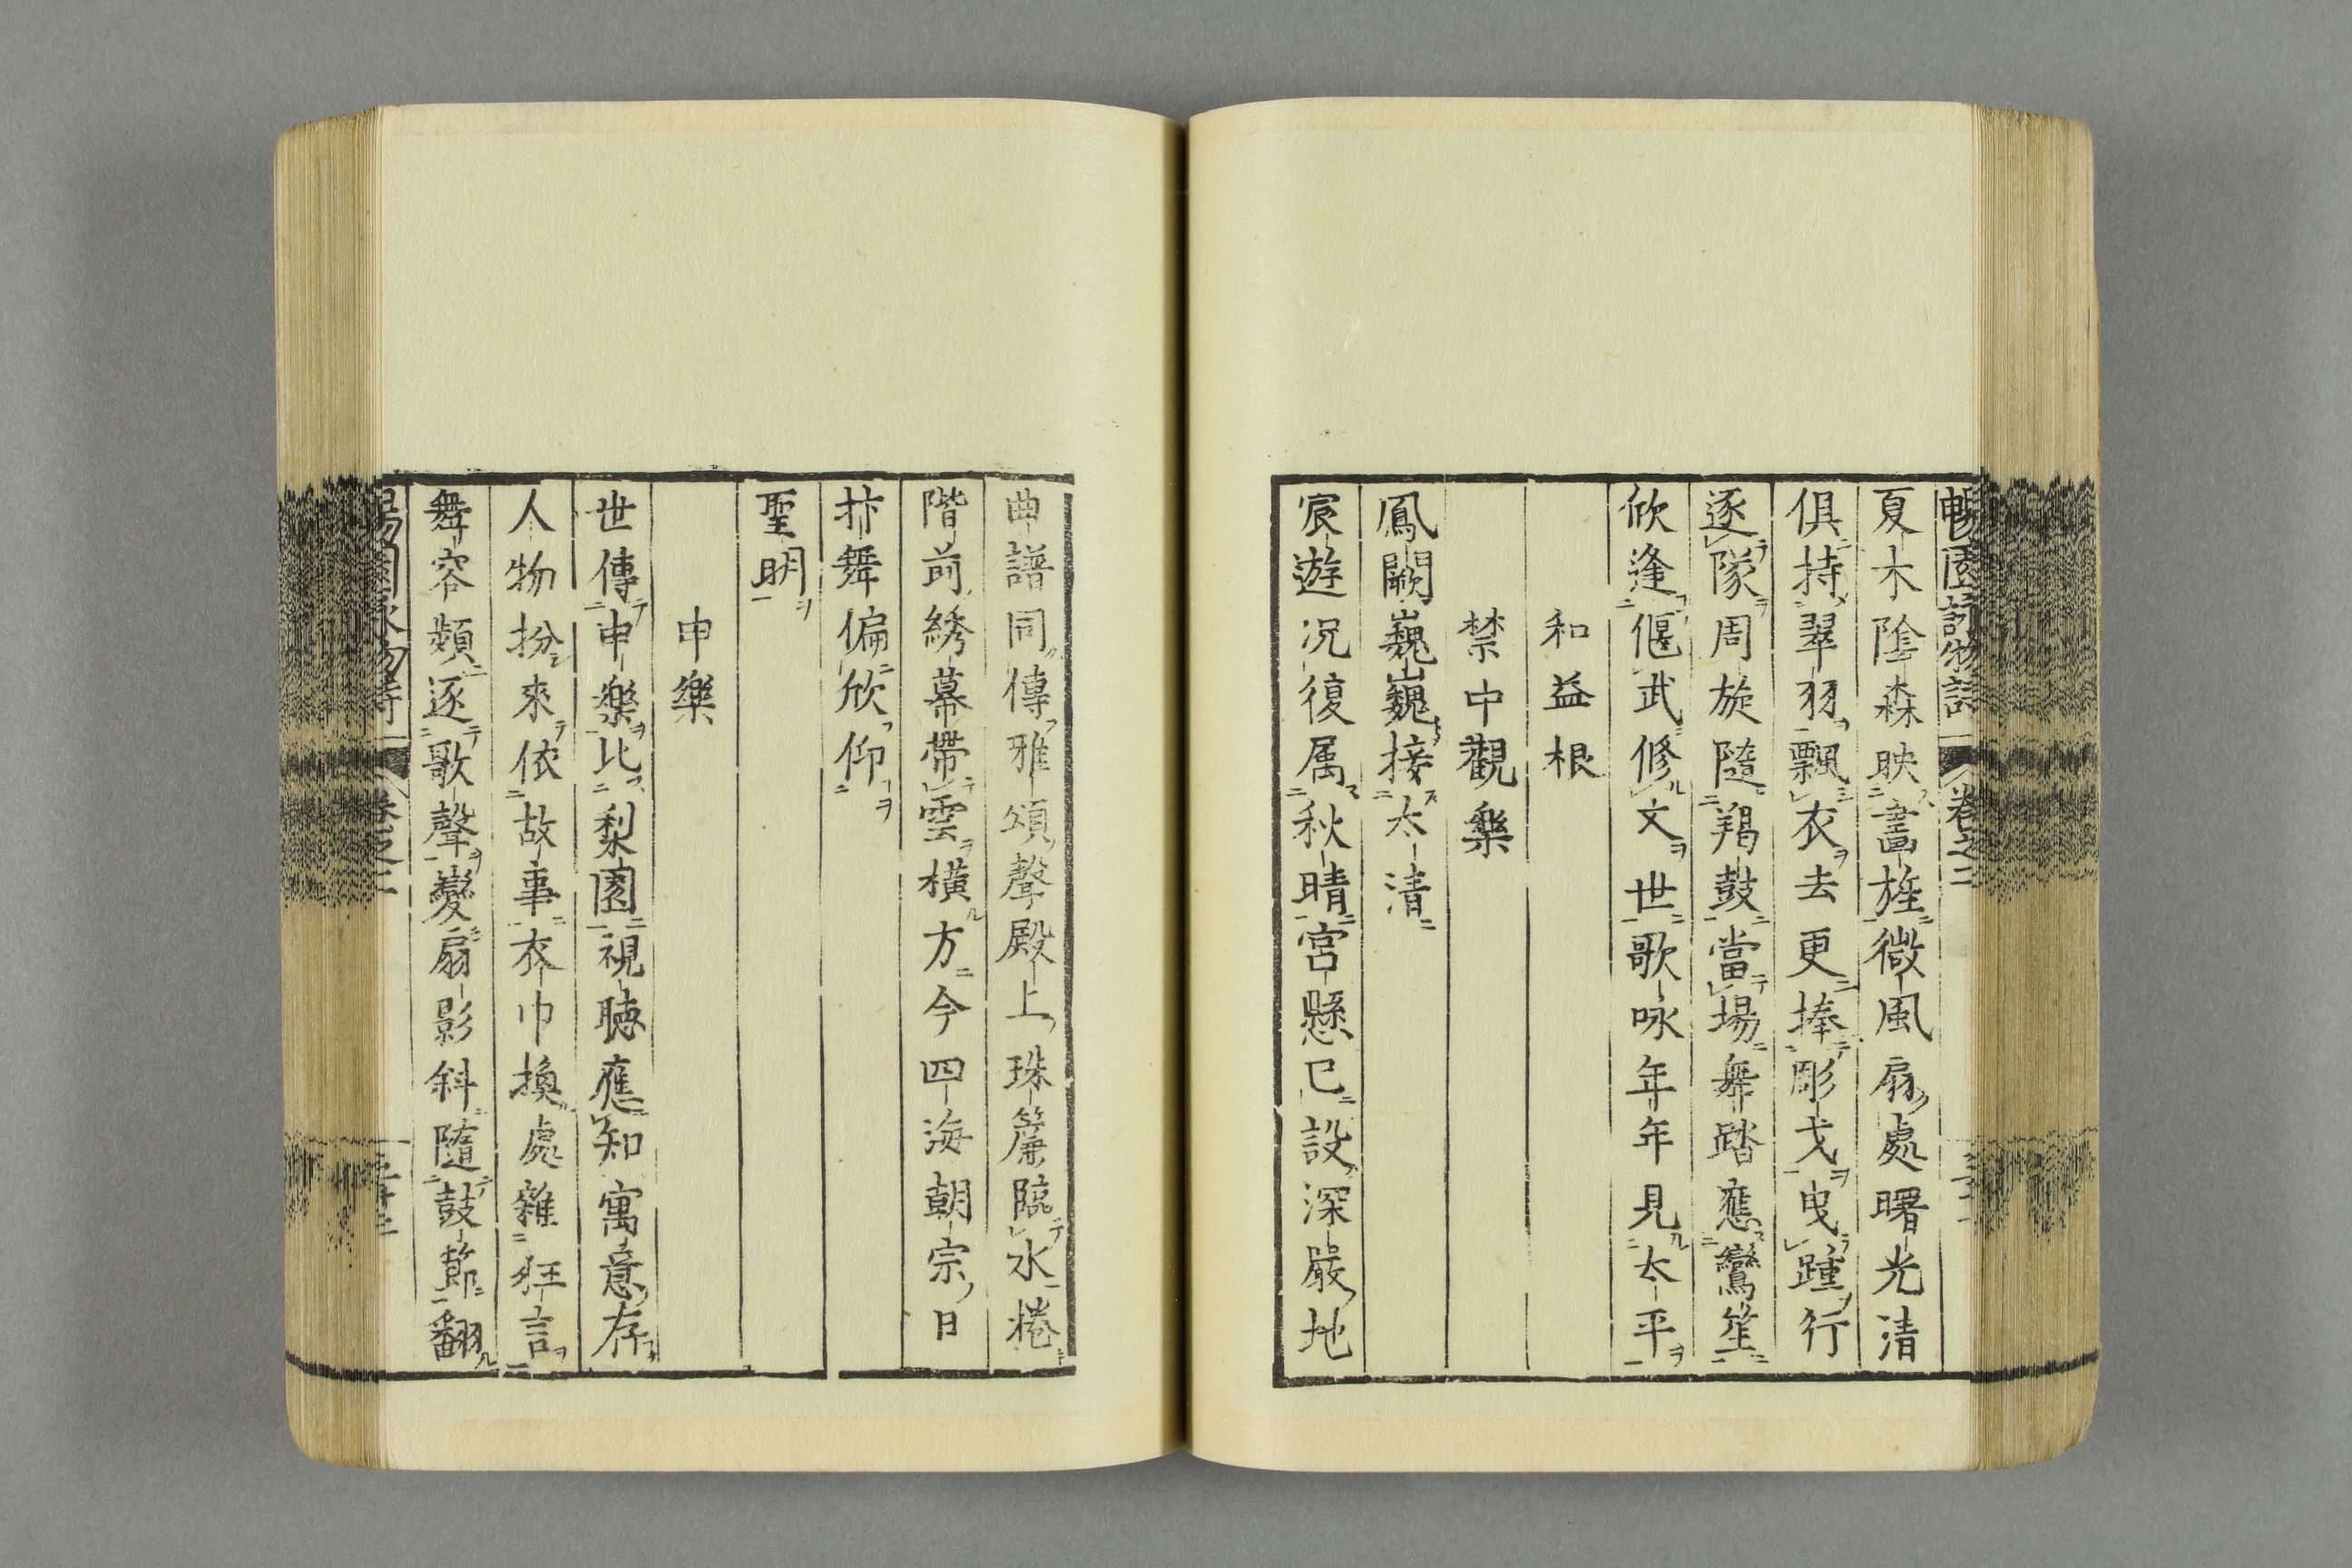 暢園詠物詩 卷之二
夏木陰森映畫旌微風扇處曙光清
俱持翠羽飄衣去更捧彫戈曳踵行
逐隊周旋隨羯鼓當場舞踏應鸞笙
欣逢偃武修文世歌咏年年見太平
和益根
禁中觀樂
鳳闕巍巍接太清
宸遊况復属秋晴宮懸已設深嚴地
曲譜同傳雅頌聲殿上珠簾臨水捲
階前綉幕帶雲橫方今四海朝宗日
抃舞偏欣仰
聖明
申樂
世傳申樂比梨園視聴應知寓意存
人物扮來依故事衣巾換處雜狂言
舞容頻逐歌聲變扇影斜隨鼓節翻
暢園詠物詩 卷之二